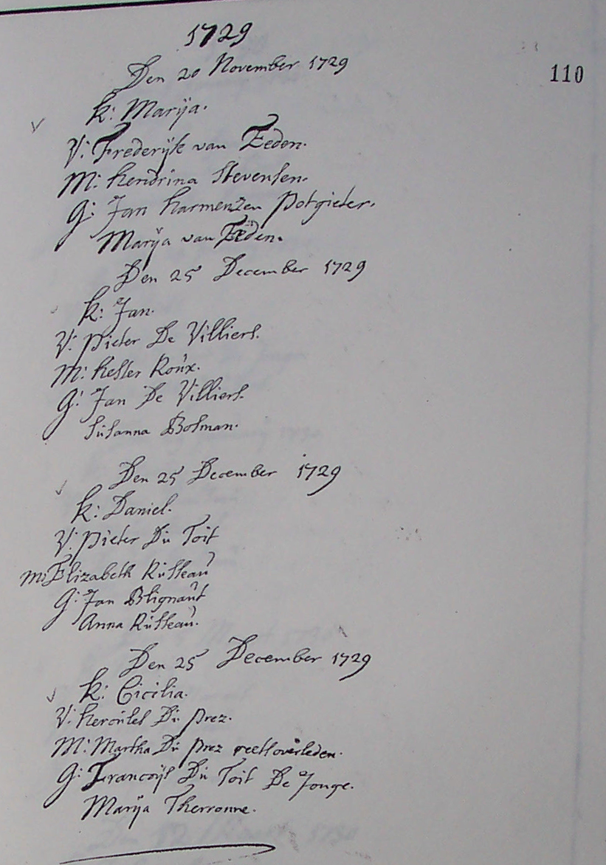 1729
110
Den 20 November 1729
k: Marija.
V: Frederijk van Eeden.
M: hendrina Stevensen.
G: Jan harmenzen potgieter.
Marija van Eeden.
Den 25 December 1729
k: Jan.
V: pieter De Villiers.
M: hester Roux.
G: Jan De Villiers.
Susanna Bosman.
Den 25 December 1729
k: Daniel.
V: pieter Du Toit
M: Elizabeth Russeau
G: Jan Blignaut
Anna Russeau.
Den 25 December 1729
k: Cicilia.
V: hercules Du prez.
M: Martha Du prez overleden.
G: Francoijs Du Toit De Jonge.
Marija Therronne.